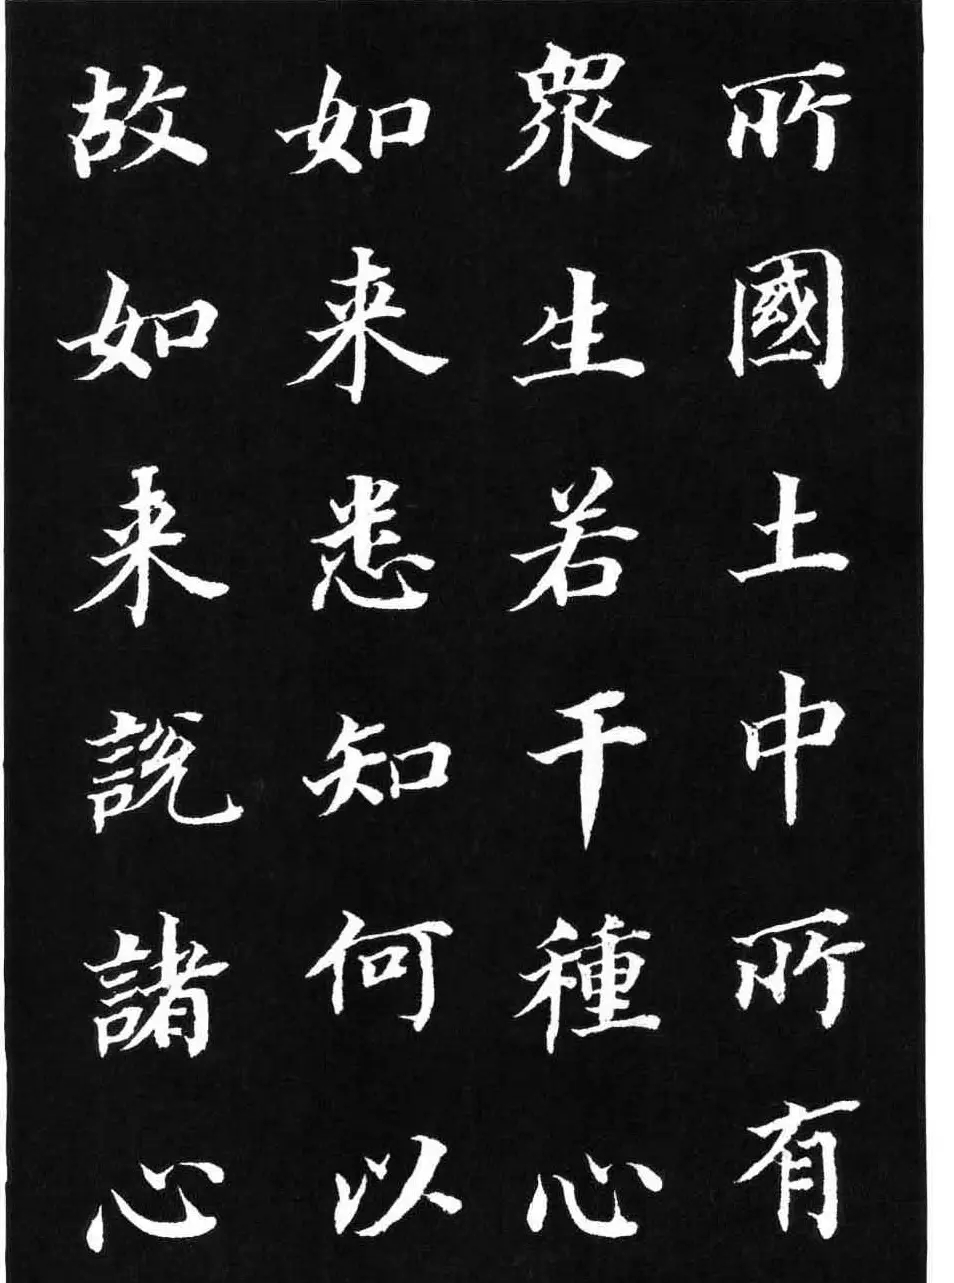 所國土中所有
衆生若干種心
如来悉知何以
故如来說諸心